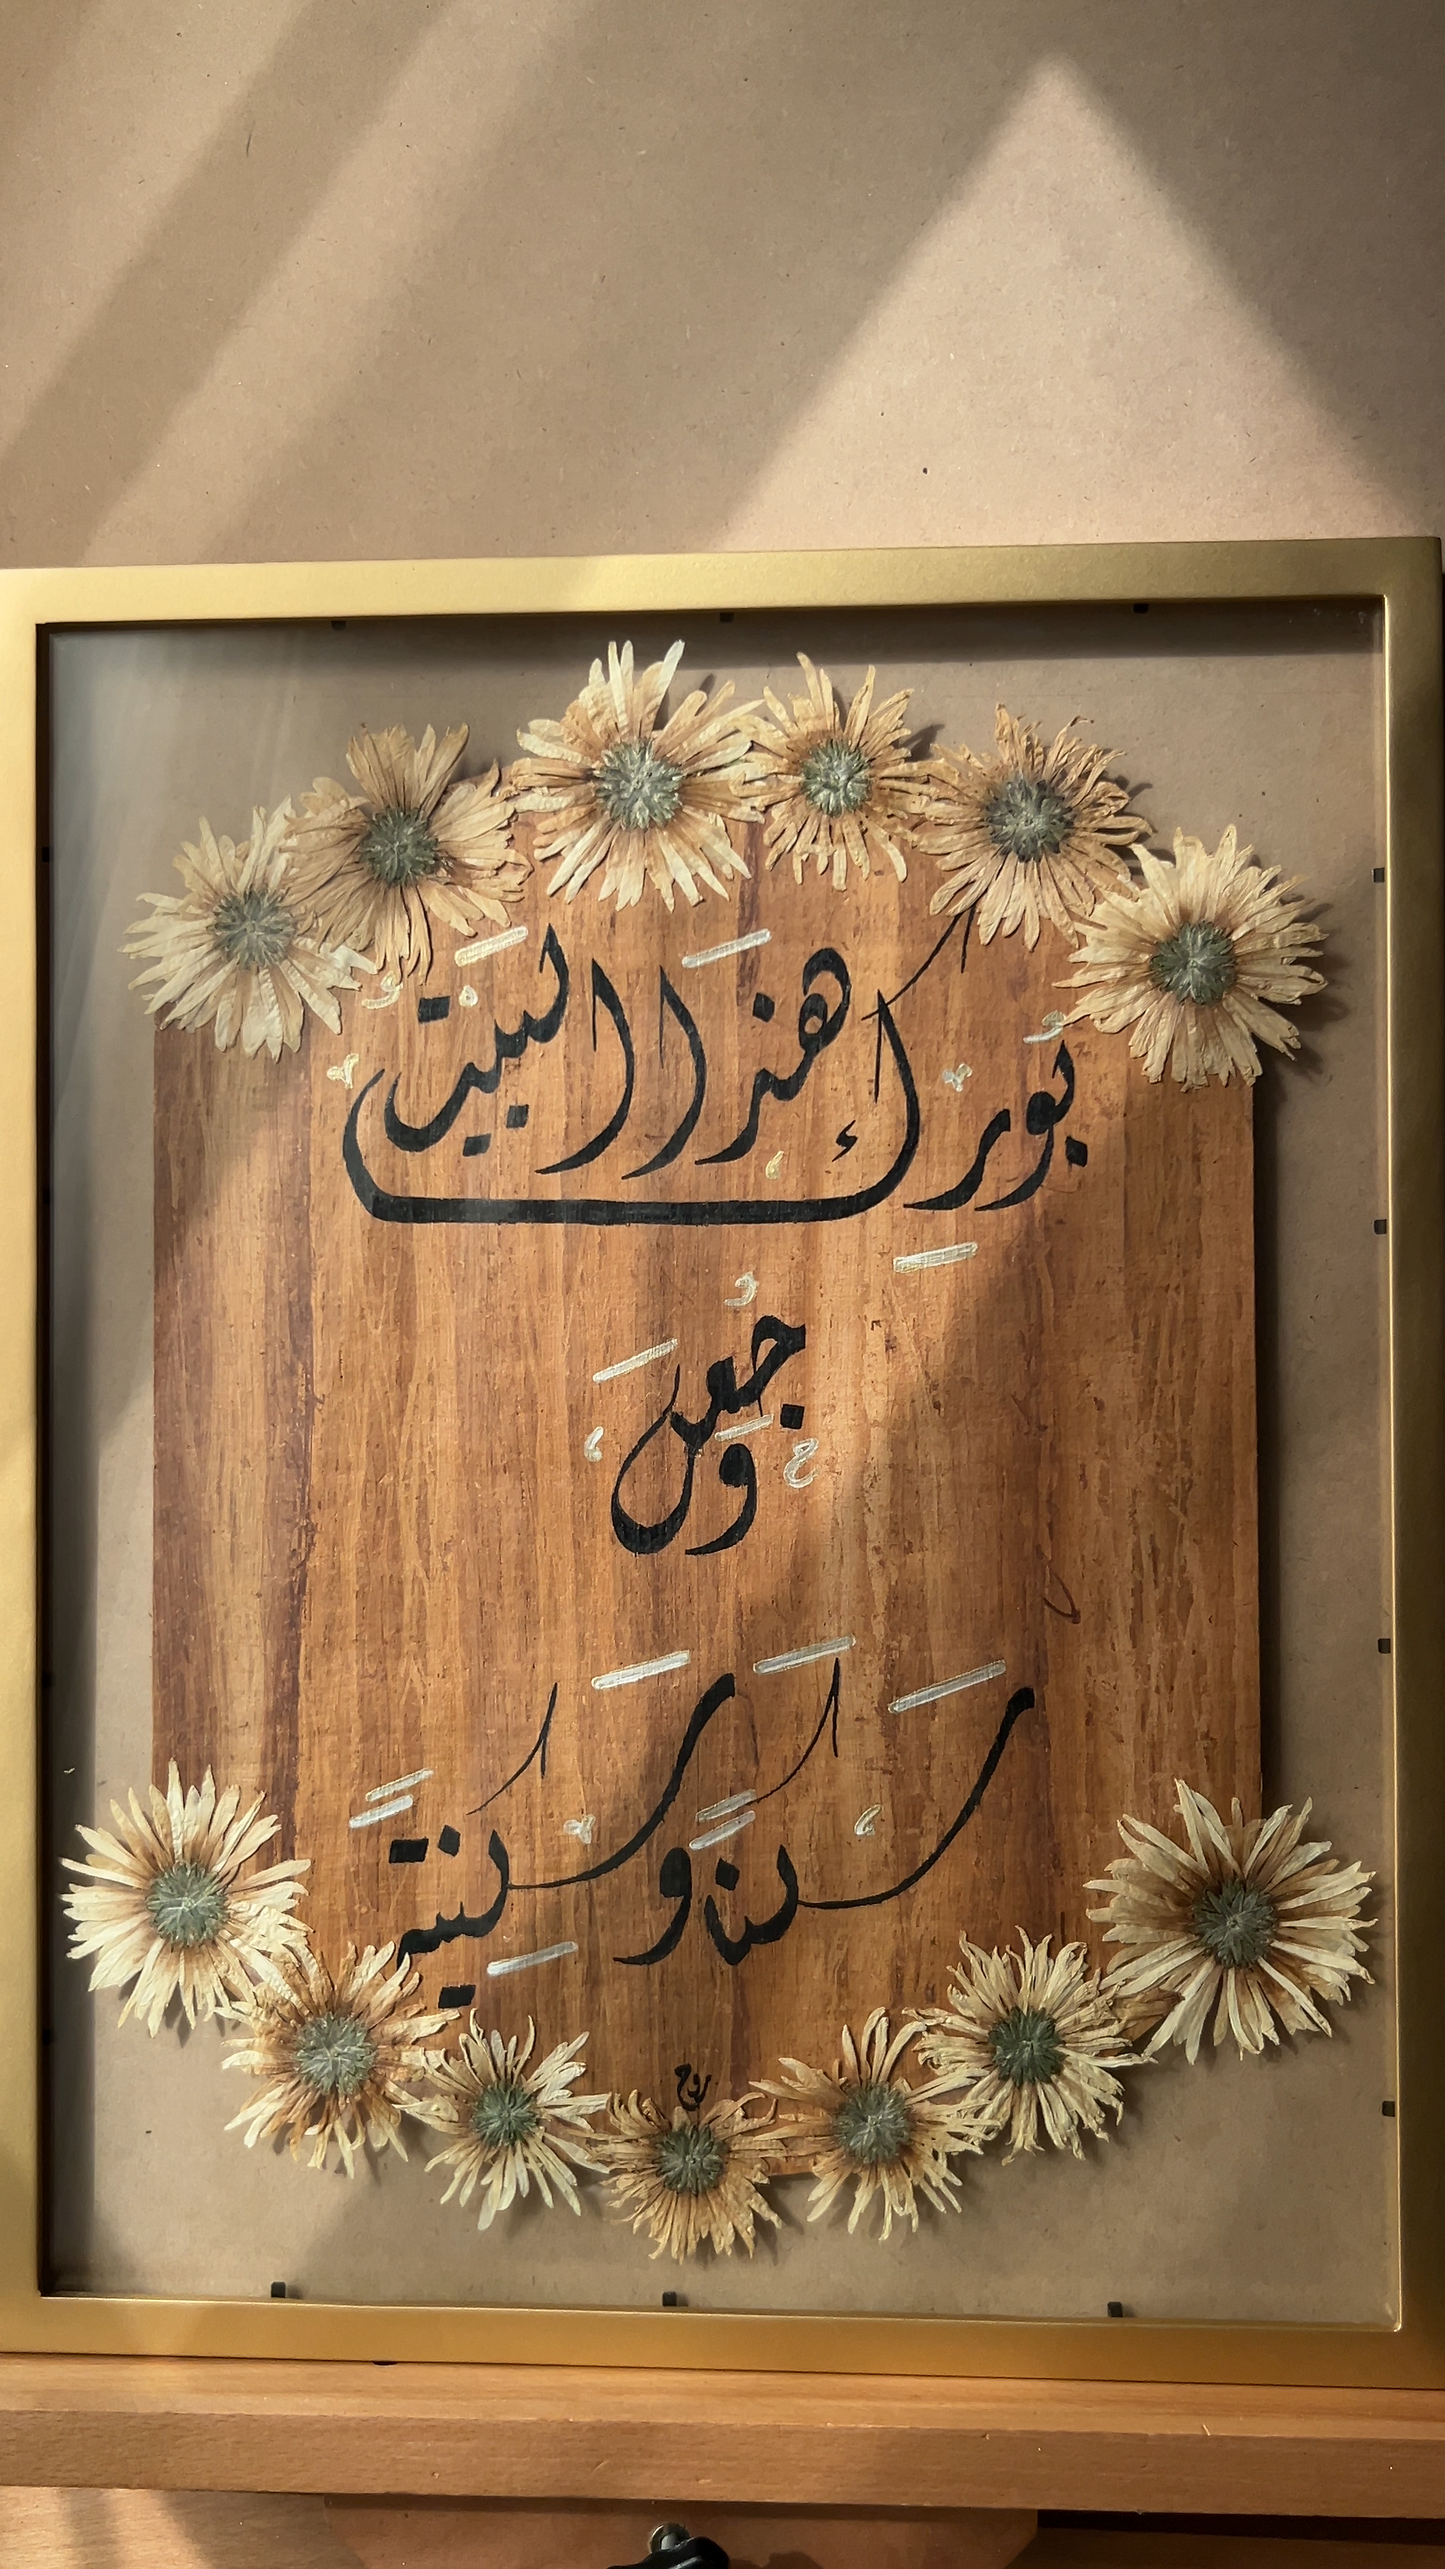 بُورِكَ هٰذَا البَيْتُ
وَجُعِلَ
سَكَنًا وَسَكِينَةً
روح